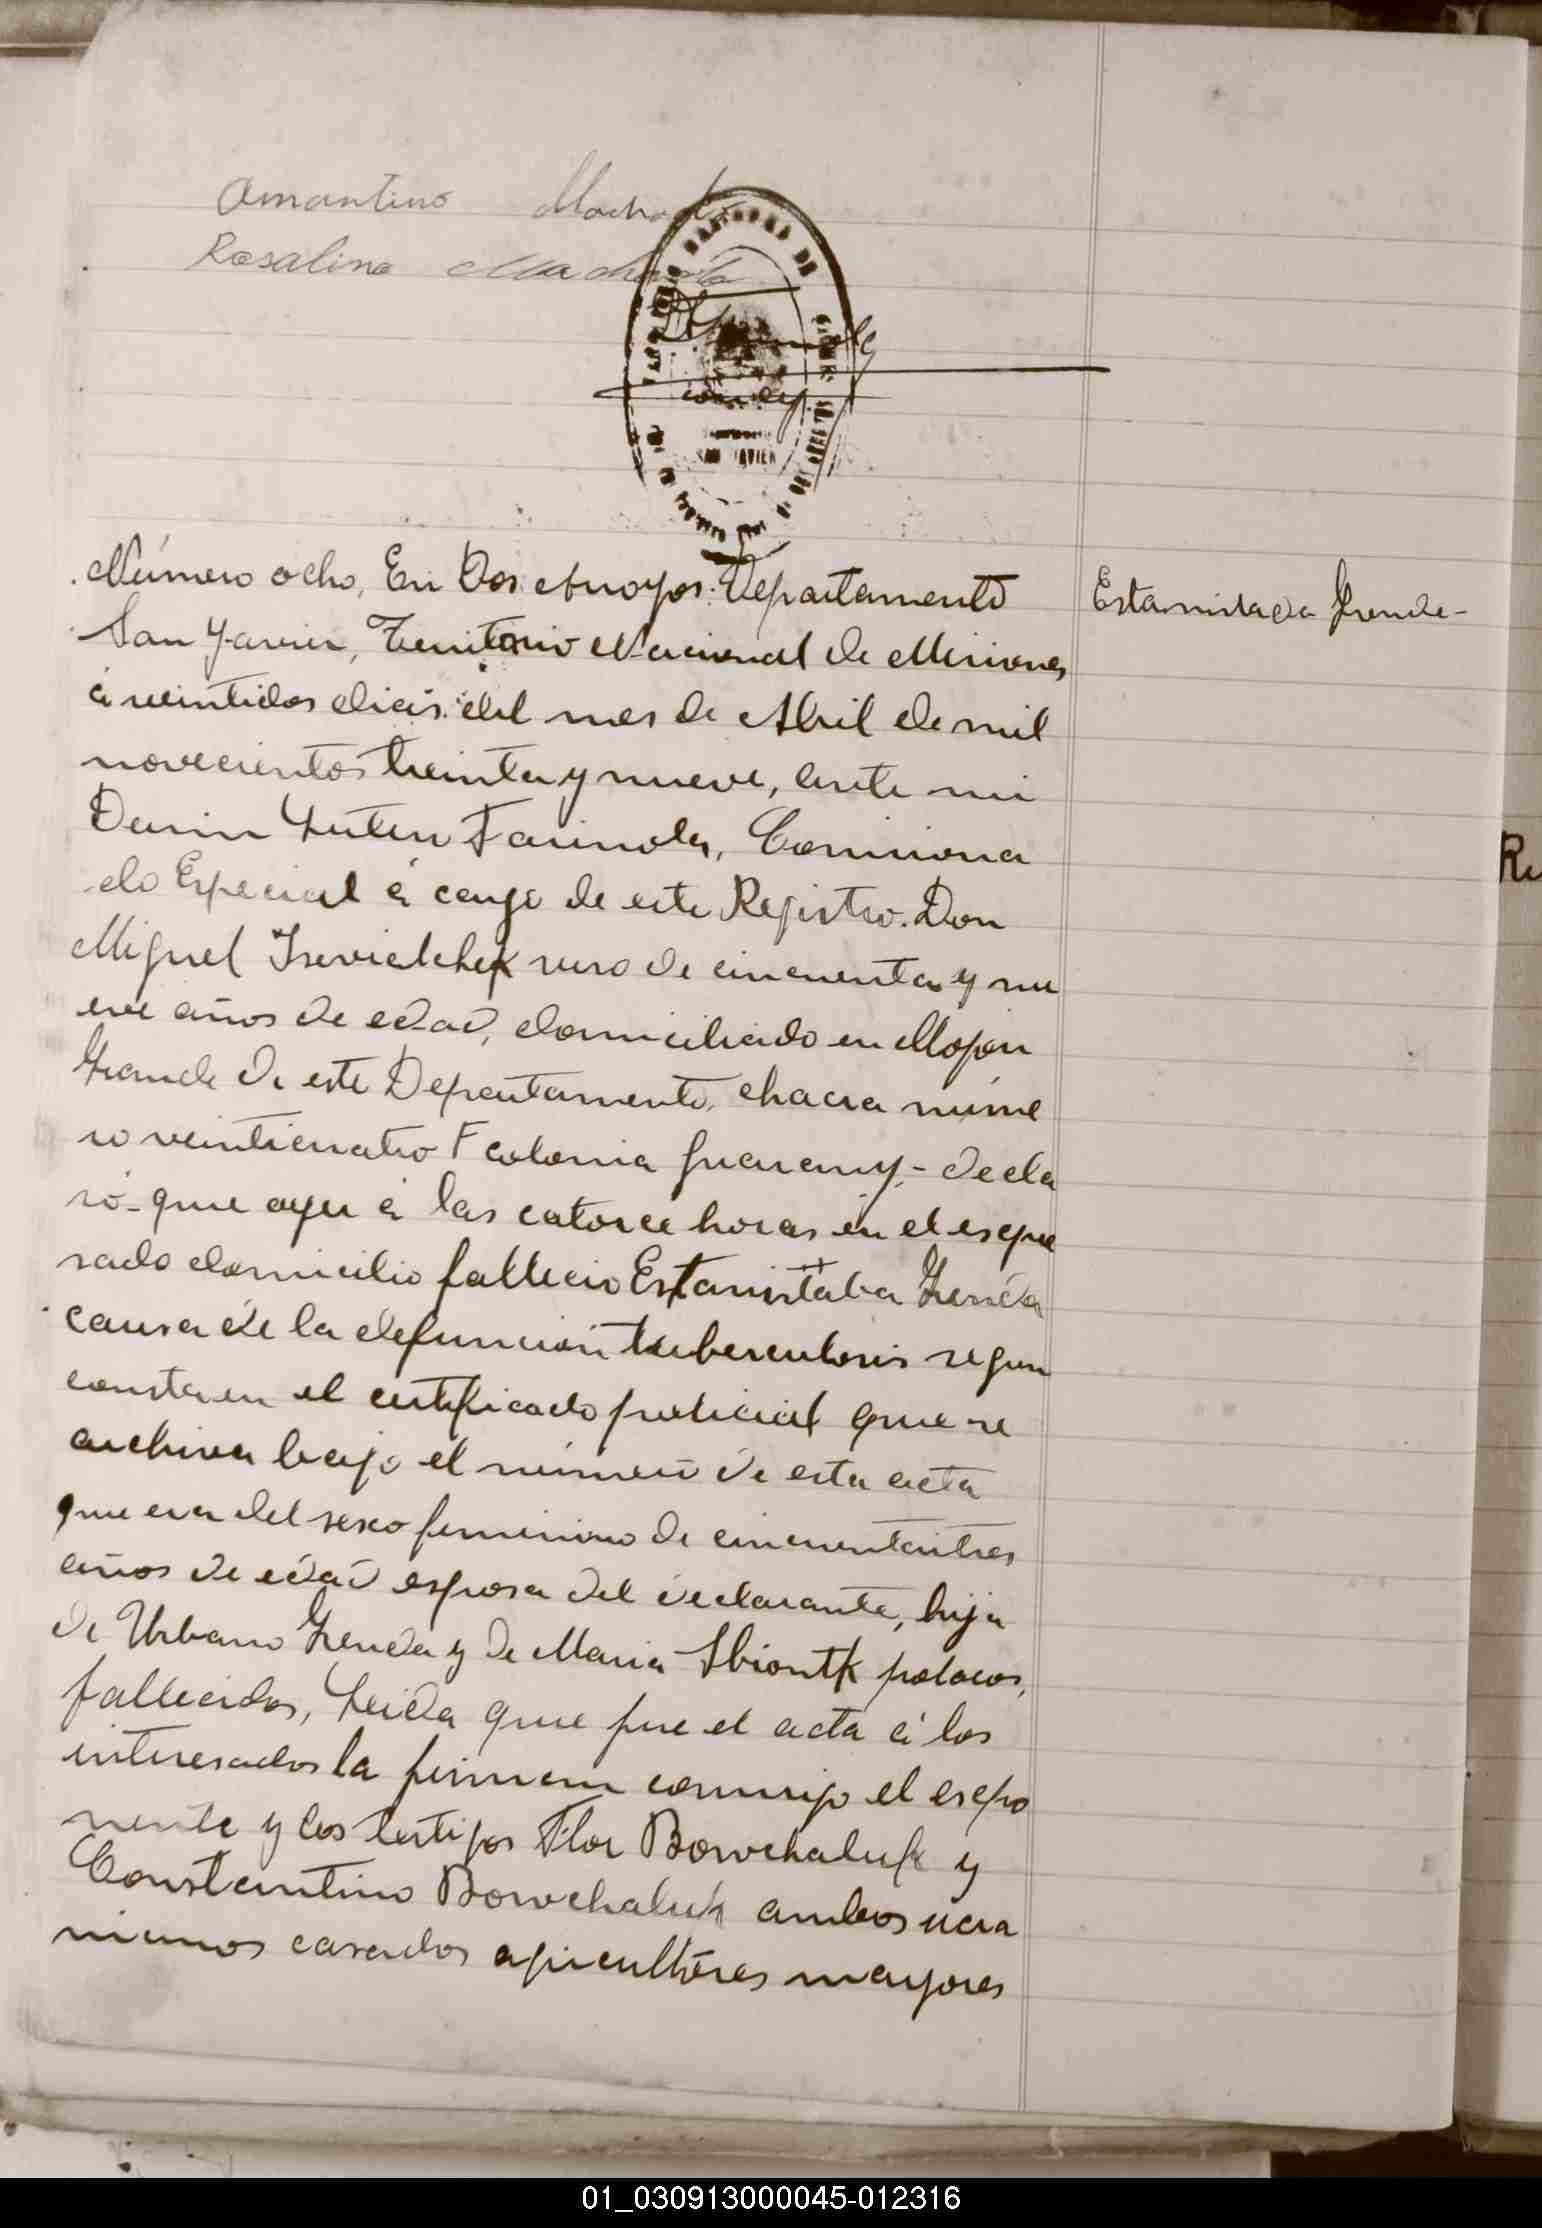 Amantino Machado
Rosalino Machado
SAN JAVIER
Número ocho, En Dos Arroyos. Departamento
San Javier, Territorio Nacional de Misiones
á veintidos dias del mes de Abril de mil
novecientos treinta y nueve, ante mi
Farinola, Comisiona
do Especial á cargo de este Registro. Don
Miguel ruso de cincuenta y nu
eve años de edad, domiciliado en Mojon
Grande de este Departamento, chacra núme
ro veinticuatro F colonia Guarany,- decla
ró- que ayer á las catorce horas en el espre
sado domicilio fallecio Estanistaba Grenda
causa de la defunción tuberculosis segun
consta en el certificado policial que se
archiva bajo el número de esta acta
que era del sexo feminino de cincuentaitres
años de edad esposa del declarante, hija
de Urbano Grenda y de Maria polacos,
fallecidos, Leida que fue el acta á los
interesados la firman conmigo el espo
nente y los testigos Flor Bowchaluk y
Constantino Bowchaluk ambos ucra
nianos casados agricultores mayores
Estanislada Grenda-
01_030913000045-012316